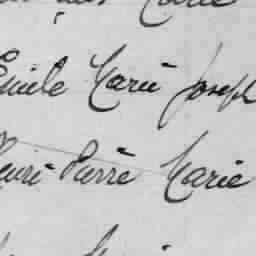 Marie
Emile Marie Joseph
Henri Pierre Marie